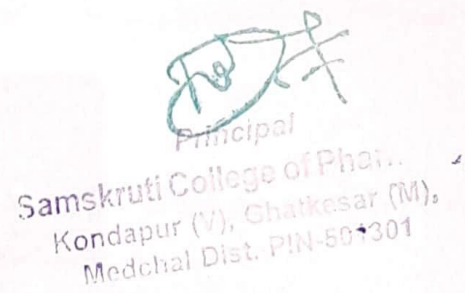 Principal
Samskruti College of Phar..
Kondapur (V), Ghatkesar (M),
Medchal Dist. PIN-501301